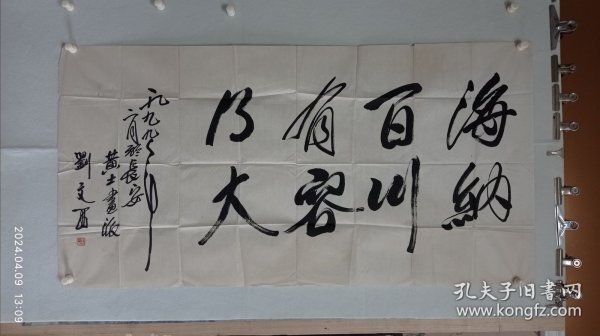 海納
百川
有容
乃大
一九九〇年
六月於長安
黄土画派
劉文西
2024.04.09 13:09
孔夫子旧书网
www.kongfz.com